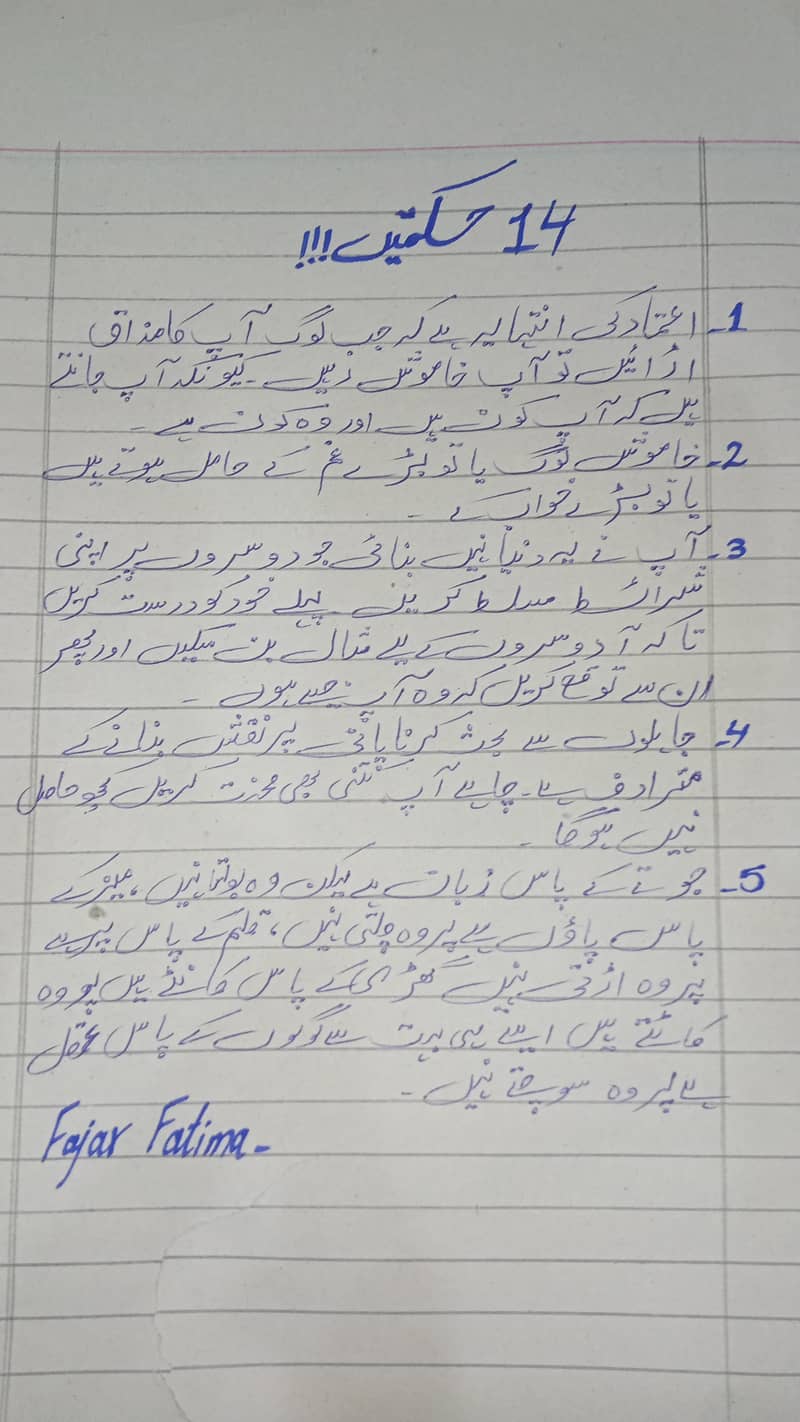 14 حکمتیں !!!
1۔ اعتماد کی انتہا یہ ہے کہ جب لوگ آپ کا مذاق
اڑائیں تو آپ خاموش رہیں۔ کیونکہ آپ جانتے
ہیں کہ آپ کون ہیں اور وہ کون ہے۔
2۔ خاموش لوگ یا تو بڑے غم کے حامل ہوتے ہیں
یا تو بڑے خواب کے۔
3۔ آپ نے یہ دنیا نہیں بنائی جو دوسروں پر اپنی
شرائط مسلط کریں۔ پہلے خود کو درست کریں
تا کہ آ دوسروں کے لیے مثال بن سکیں اور پھر
ان سے توقع کریں کہ وہ آپ جیسے ہوں۔
4۔ جاہلوں سے بحث کرنا پانی پر نقش بنانے کے
مترادف ہے۔ چاہے آپ کتنی بھی محنت کریں کچھ حاصل
نہیں ہوگا۔
5۔ جوتے کے پاس زبان ہے لیکن وہ بولتا نہیں، میز کے
پاس پاؤں ہے پر وہ چلتی نہیں، قلم کے پاس پر ہے
پر وہ اڑتی نہیں گھڑی کے پاس کانٹے ہیں پر وہ
کاٹتے ہیں ایسے ہی بہت سے لوگوں کے پاس عقل
ہے پر وہ سوچتے نہیں۔
Fajar Fatima-